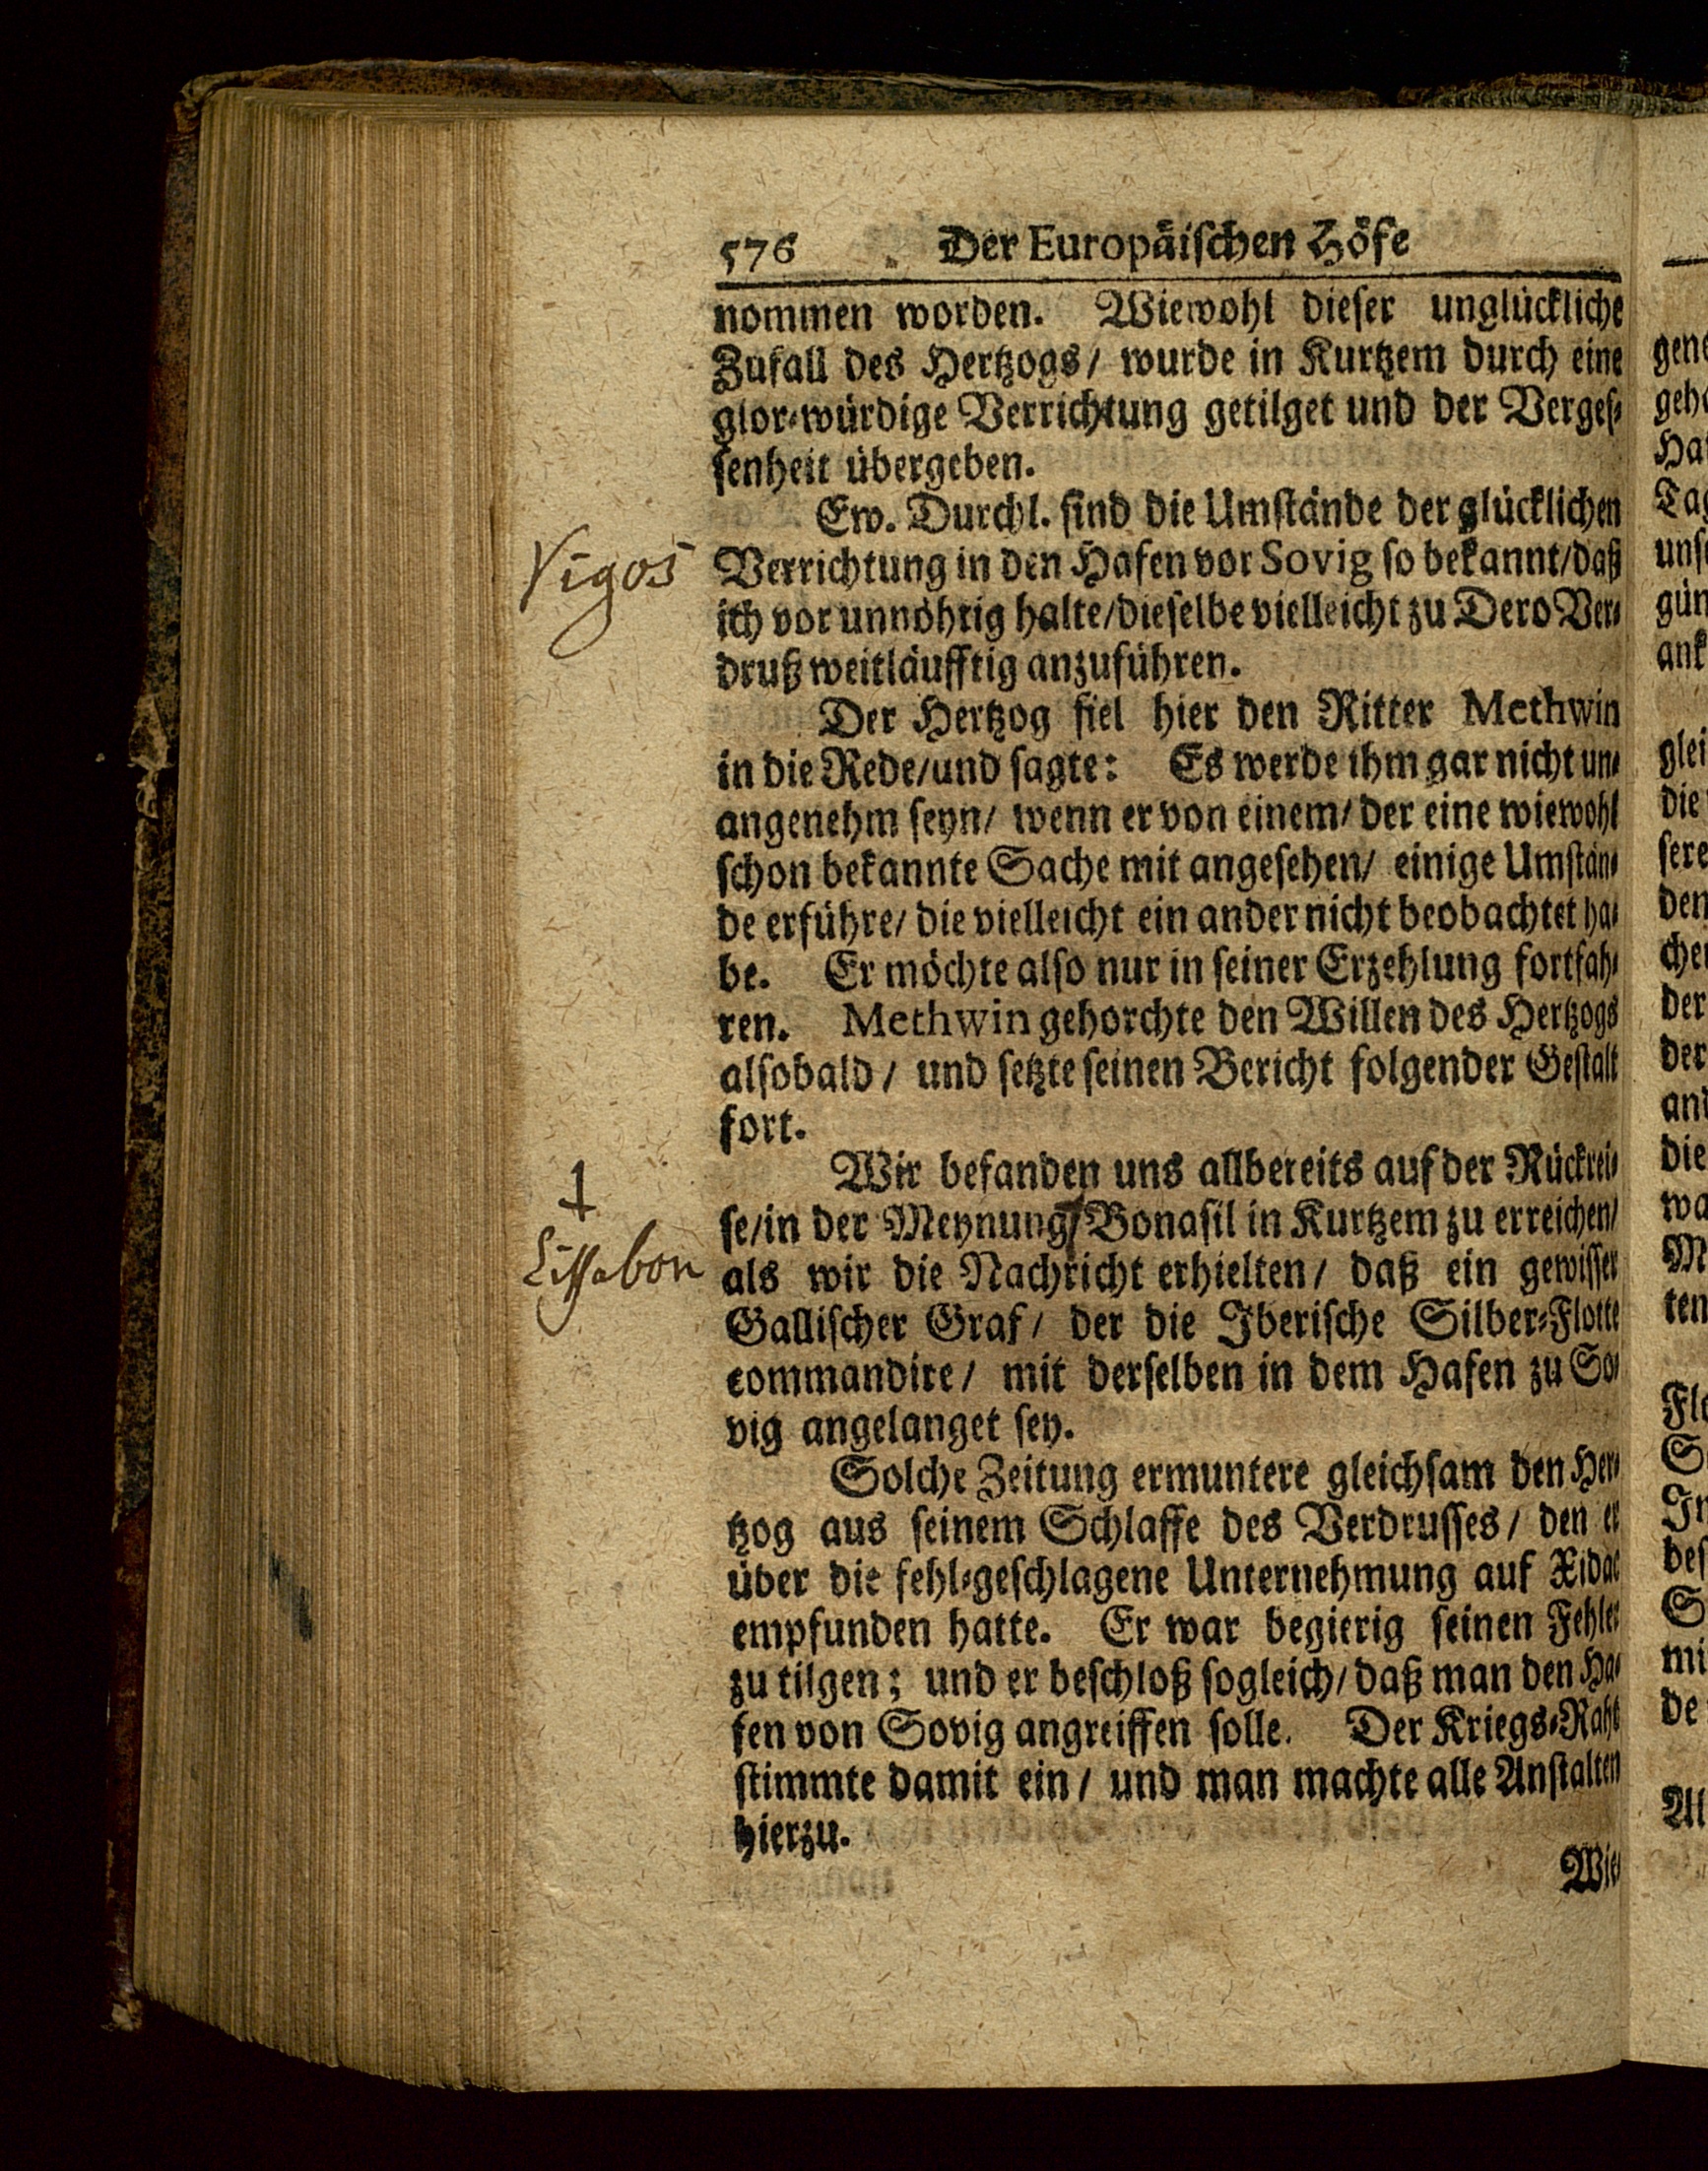 576 Der Europäischen Höfe
nommen worden. Wiewohl dieser unglückliche
Zufall des Hertzogs/ wurde in Kurtzem durch eine
glor-würdige Verrichtung getilget und der Verges-
senheit übergeben.
Ew. Durchl. sind die Umstände der glücklichen
Vigos
Verrichtung in den Hafen vor Sovig so bekannt/daß
ich vor unnöhtig halte/dieselbe vielleicht zu Dero Ver-
druß weitläufftig anzuführen.
Der Hertzog fiel hier den Ritter Methwin
in die Rede/und sagte: Es werde ihm gar nicht un-
angenehm seyn/ wenn er von einem/ der eine wiewohl
schon bekannte Sache mit angesehen/ einige Umstän-
de erführe/ die vielleicht ein ander nicht beobachtet ha-
be. Er möchte also nur in seiner Erzehlung fortfah-
ren. Methwin gehorchte den Willen des Hertzogs
alsobald/ und setzte seinen Bericht folgender Gestalt
fort.
Wir befanden uns allbereits auf der Rückrei-
se/in der Meynung/ Bonasil in Kurtzem zu erreichen/
Lissabon
als wir die Nachricht erhielten/ daß ein gewisser
Gallischer Graf/ der die Iberische Silber-Flotte
commandire/ mit derselben in dem Hafen zu So-
vig angelanget sey.
Solche Zeitung ermuntere gleichsam den Her-
tzog aus seinem Schlaffe des Verdrusses/ den er
über die fehl-geschlagene Unternehmung auf Xidac
empfunden hatte. Er war begierig seinen Fehler
zu tilgen; und er beschloß sogleich/ daß man den Ha-
fen von Sovig angreiffen solle. Der Kriegs-Raht
stimmte damit ein/ und man machte alle Anstalten
hierzu.
Wie-